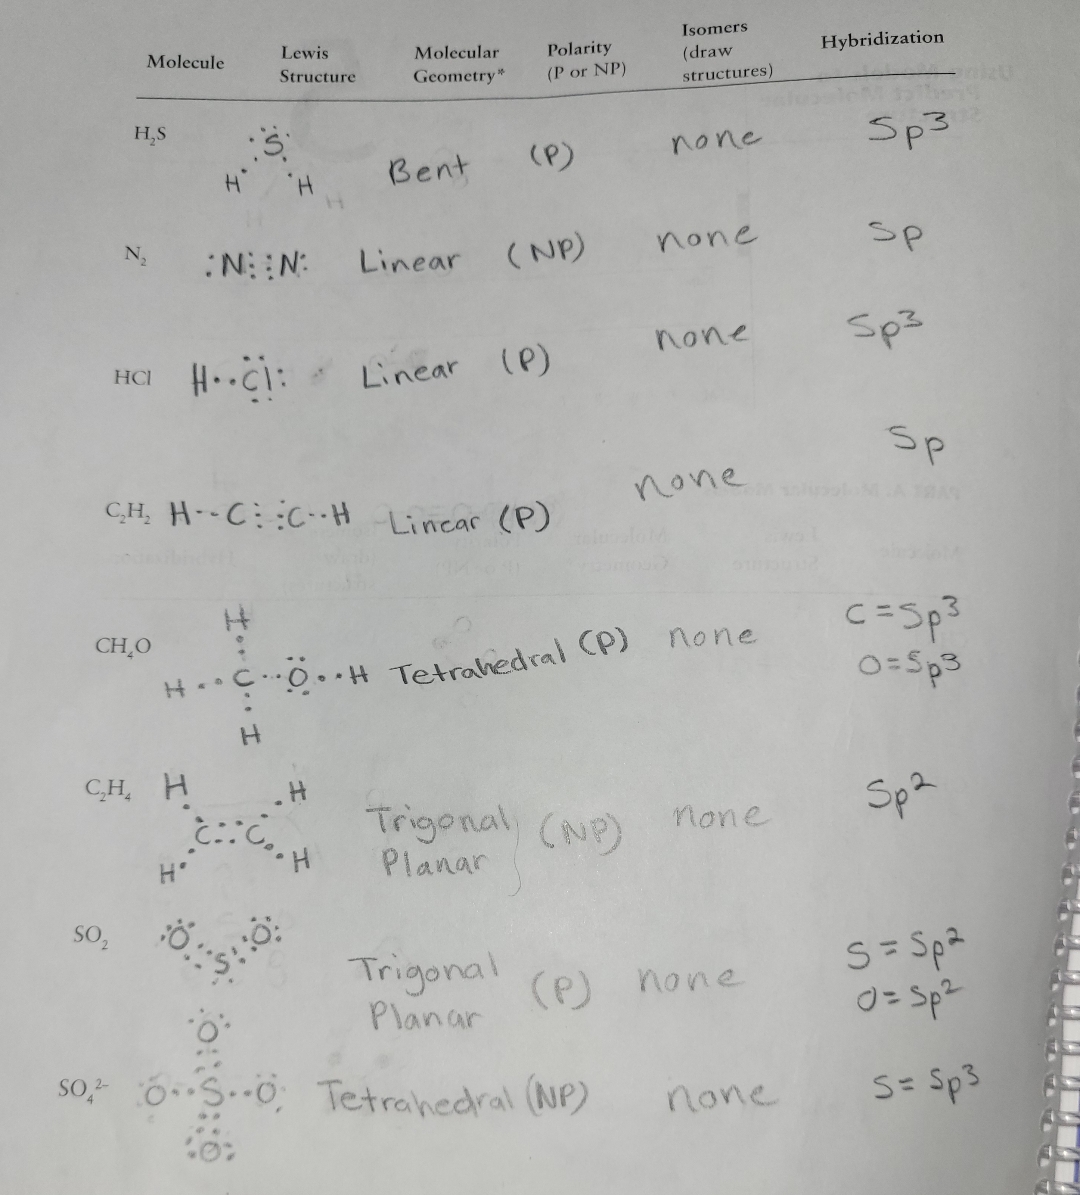 Molecule Lewis Structure Molecular Geometry* Polarity (P or NP) Isomers (draw structures) Hybridization
H₂S :S: H H Bent (P) none Sp³
N₂ :N⋮⋮N: Linear (NP) none Sp
HCl H··Cl: Linear (P) none Sp³
C₂H₂ H··C⋮⋮C··H Linear (P) none Sp
H
CH₄O H··C··O··H Tetrahedral (P) none C=Sp³
O=Sp³
H
C₂H₄ H H
C::C Trigonal Planar (NP) none Sp²
H H
SO₂ O S O Trigonal Planar (P) none S=Sp²
O=Sp²
O
SO₄²⁻ O··S··O Tetrahedral (NP) none S=Sp³
O